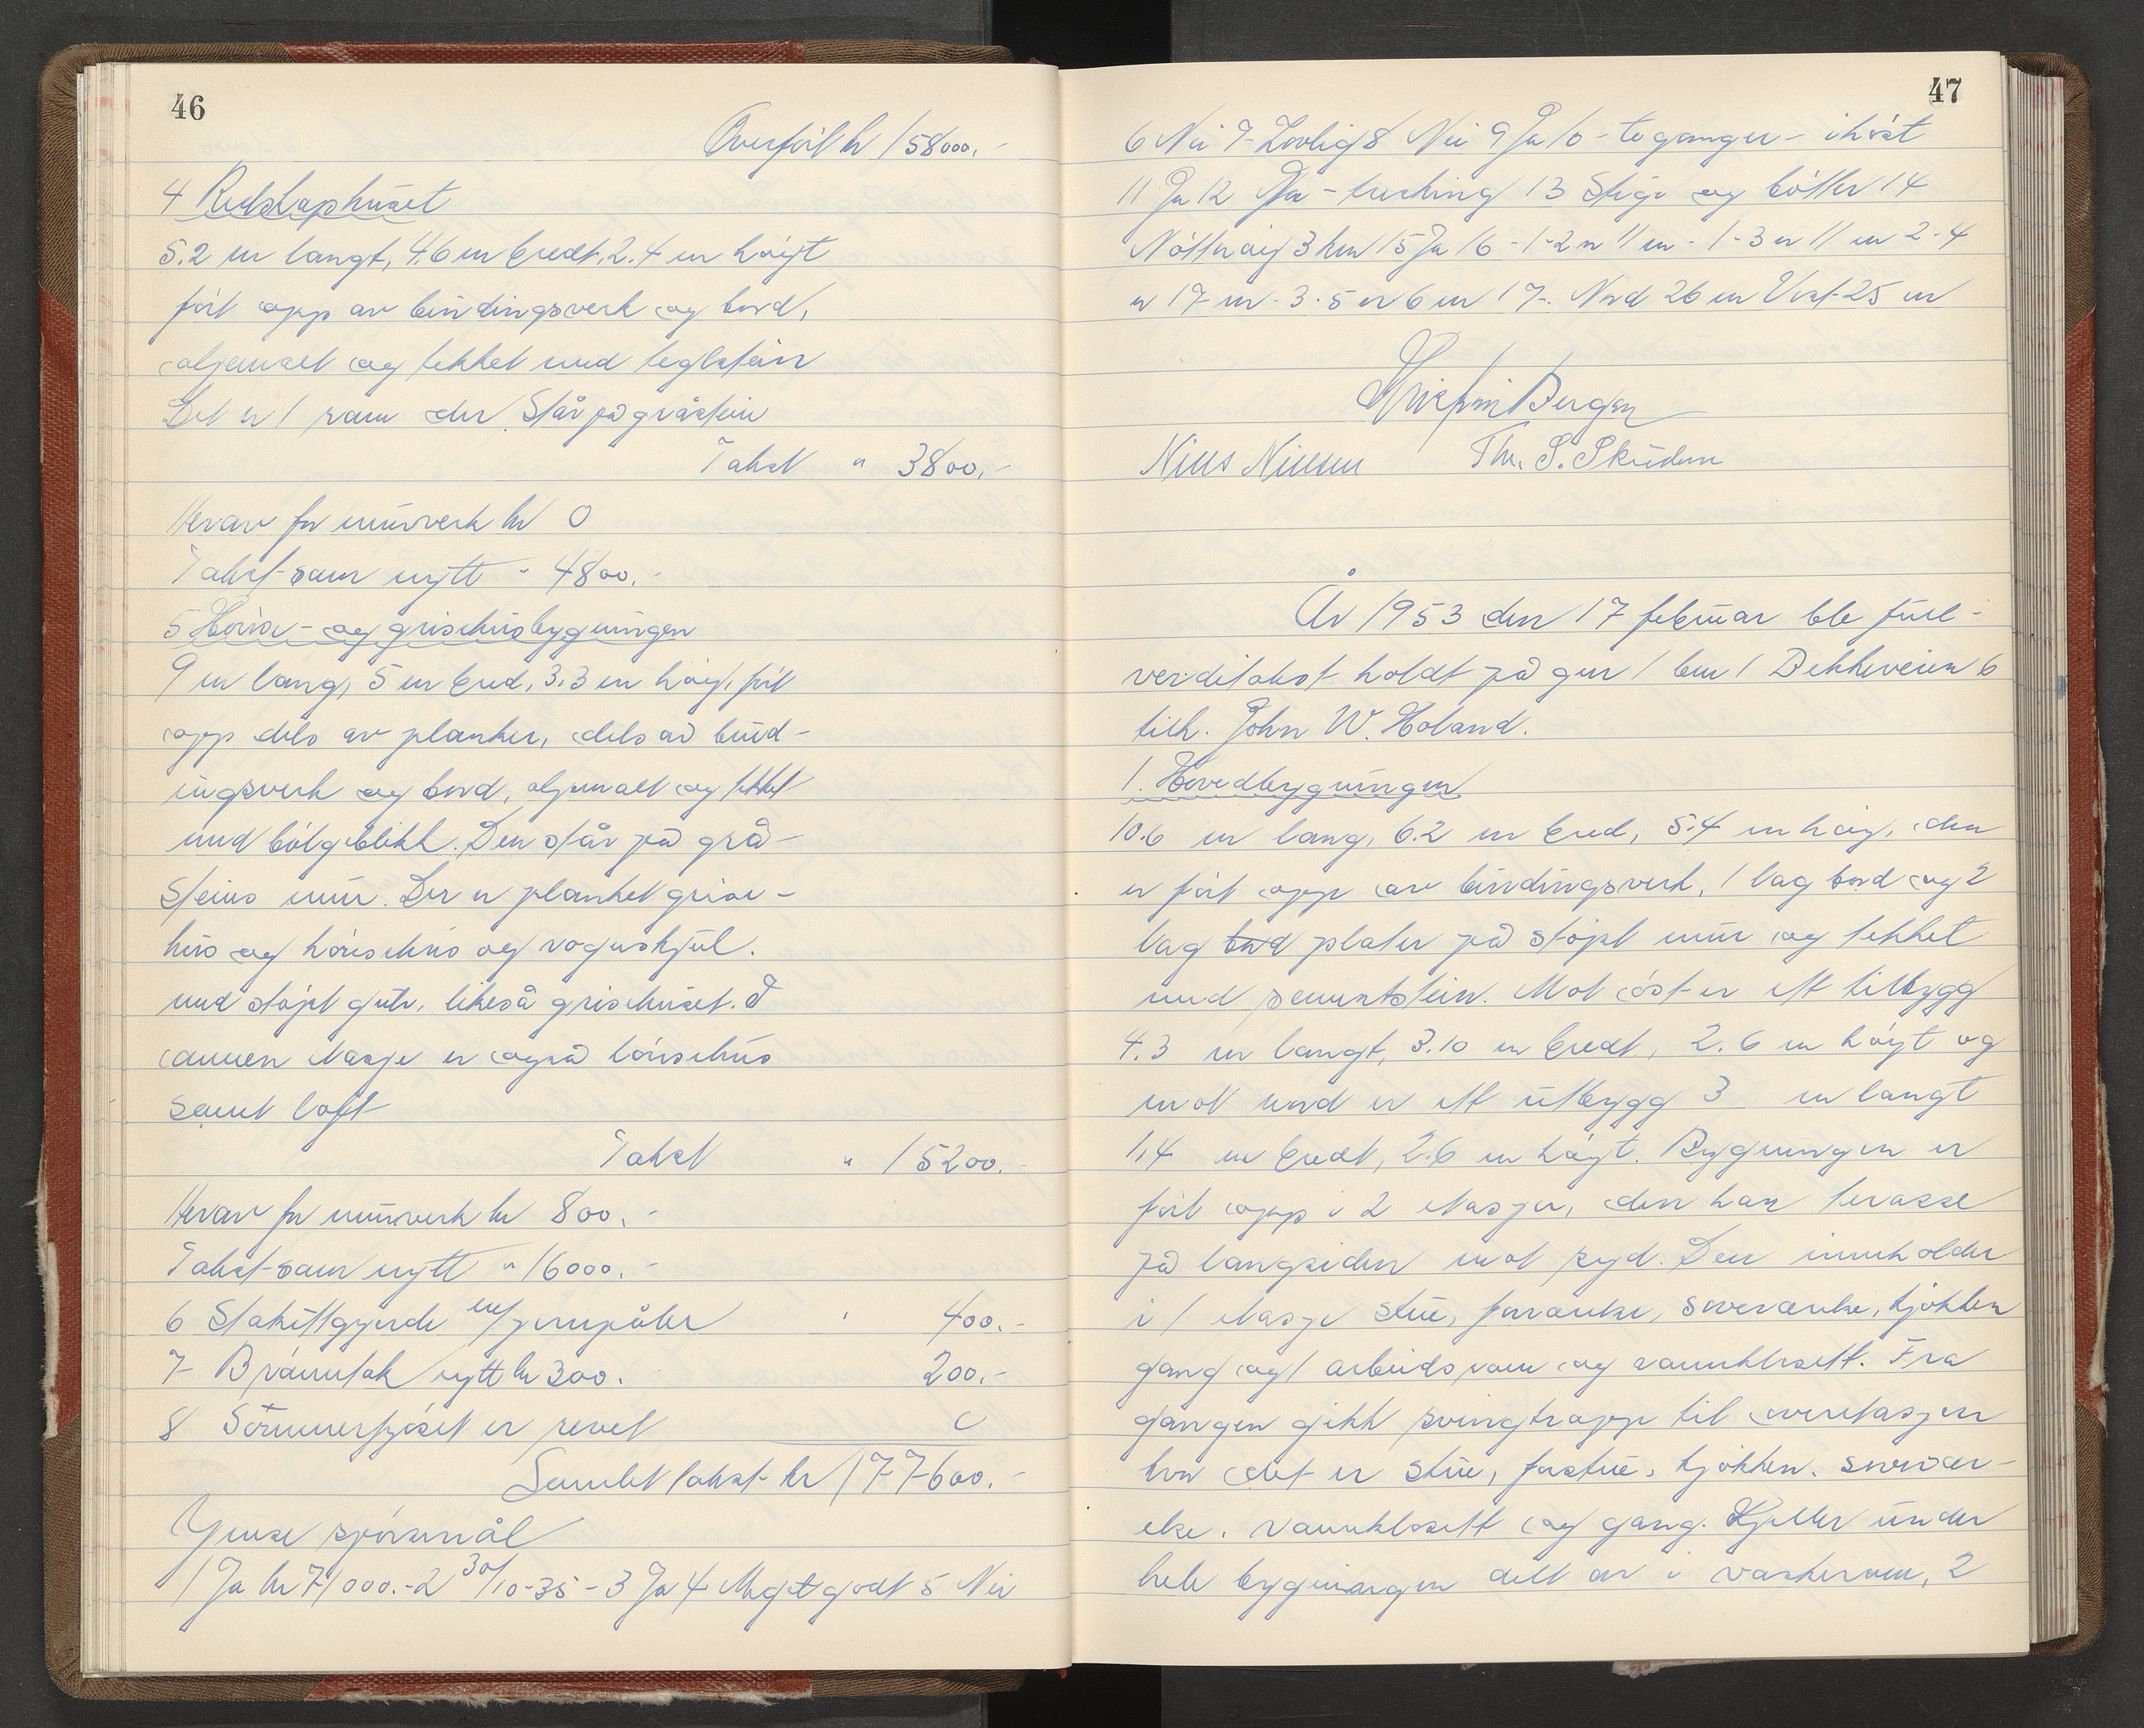 46
Overfört kr 158000.-
4 Redskaphuset
5.2 m langt, 4.6 m bredt, 2.4 m höyt
fört opp av bindingsverk og bord,
oljemalt og tekket med teglstein
Det er 1 rom der. Står på gråstein
Takst " 3800.-
Herav for murverk kr 0
Takst som nytt " 4800.-
5 Hönse- og grisehusbygningen
9 m lang, 5 m bred, 3.3 m höy, fört
opp dels av planker, dels av bind-
ingsverk og bord, oljemalt og tekket
med bölgeblikk. Den står på grå-
steins mur. Der er planket grise-
hus og hönsehus og vognskjul.
med stöpt gulv, likeså grisehuset. I
annen etasje er også hönsehus
samt loft
Takst " 15200.-
Herav for murverk kr 800.-
Takst som nytt " 16000.-
6 Stakittgjerde m/ jernpåler " 400.-
7 Brönntak nytt kr 300. 200.-
8 Sommerfjöset er revet 0
Samlet takst kr 177600.-
Ymse spörsmål
1 Ja kr 71000.- 2 30/10-35 - 3 Ja 4 Meget godt 5 Nei
47
6 Nei 7 Lovlig 8 Nei 9 Ja 10 - to ganger - i höst
11 Ja 12 Ja - 13 Stige og bötter 14
Nötteröy 3 km 15 Ja 16 - 1-2 er 11 m - 1-3 er 11 m 2-4
er 17 m - 3-5 er 6 m 17. Nord 26 m Vest 25 m
Kristin Bergan
Nils Nilsen Th. S. Skuden
År 1953 den 17 februar ble full-
verditakst holdt på gnr 1 bnr 1 Bekkeveien 6
tilh. John W. Holand.
1. Hovedbygningen
10.6 m lang, 6.2 m bred, 5.4 m höy, den
er fört opp av bindingsverk, 1 lag bord og 2
lag bord plater på stöpt mur og tekket
med sementstein. Mot öst er ett tilbygg
4.3 m langt, 3.10 m bredt, 2.6 m höyt og
mot nord er ett utbygg 3 m langt
1,4 m bredt, 2.6 m höyt. Bygningen er
fört opp i 2 etasjer, den har terasse
på langsiden mot syd. Den inneholder
i 1 etasje stue, soverelse, kjökken
gang og 1 arbeidsrom og vannklosett. Fra
gangen gikk svingtrapp til overetasjen
hvor det er stue, forstue, kjökken. sovevær-
else. vannklosett og gang. Kjeller under
hele bygningen delt av i vaskerom, 2